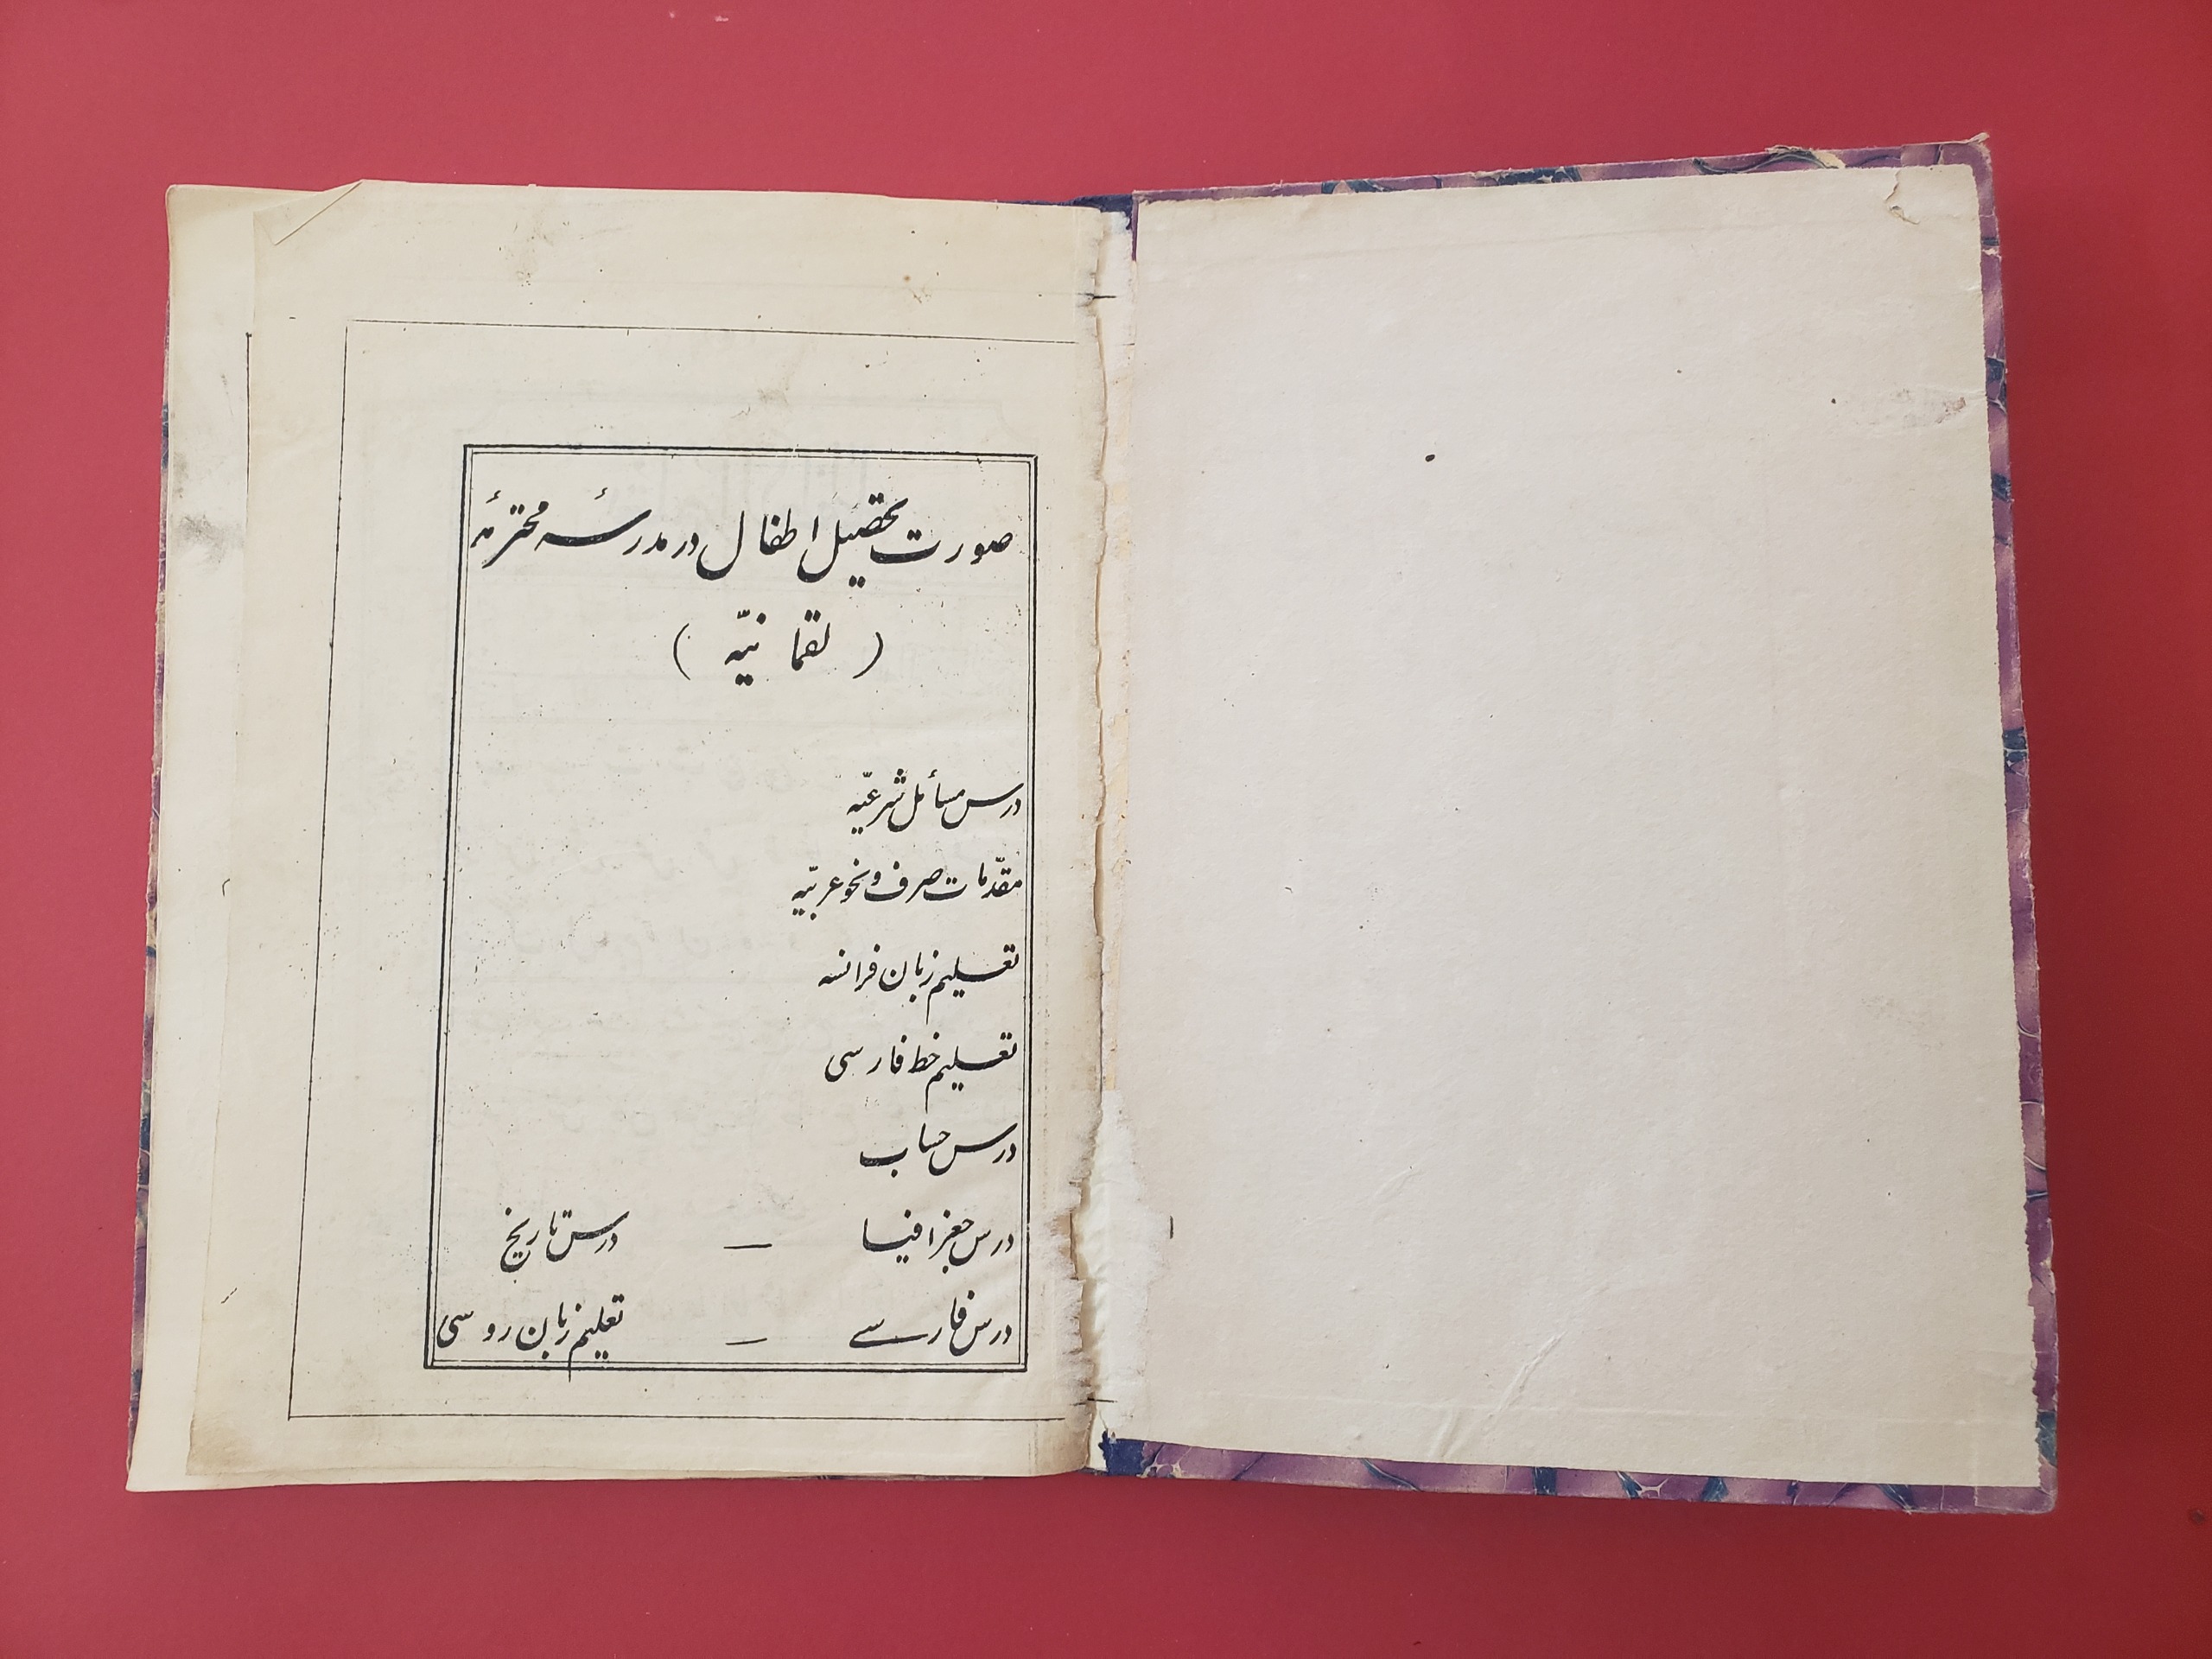 صورت تحصیل اطفال در مدرسهٔ محترمهٔ
( لقمانیّه )
درس مسائل شرعیّه
مقدّمات صرف و نحو عربیّه
تعلیم زبان فرانسه
تعلیم خط فارسی
درس حساب
درس جغرافیا — درس تاریخ
درس فارسے — تعلیم زبان روسی